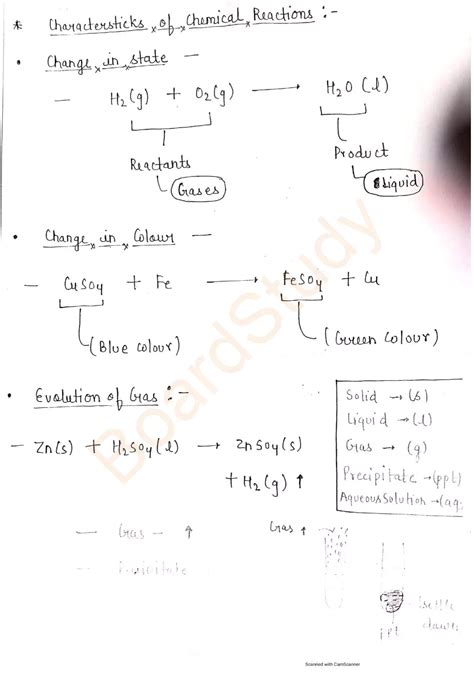 * Charactersticks of Chemical Reactions :-
• Change in state —
— H₂(g) + O₂(g) → H₂O (l)
Reactants Product
Gases Liquid
• Change in Colour —
CuSO₄ + Fe → FeSO₄ + Cu
(Blue colour) (Green colour)
• Evolution of Gas :-
Solid → (s)
Liquid → (l)
Gas → (g)
Precipitate → (ppt)
Aqueous Solution → (aq.
— Zn(s) + H₂SO₄(l) → ZnSO₄(s)
+ H₂(g) ↑
— Gas — ↑
Gas ↑
settle
down
BoardStudy
Scanned with CamScanner